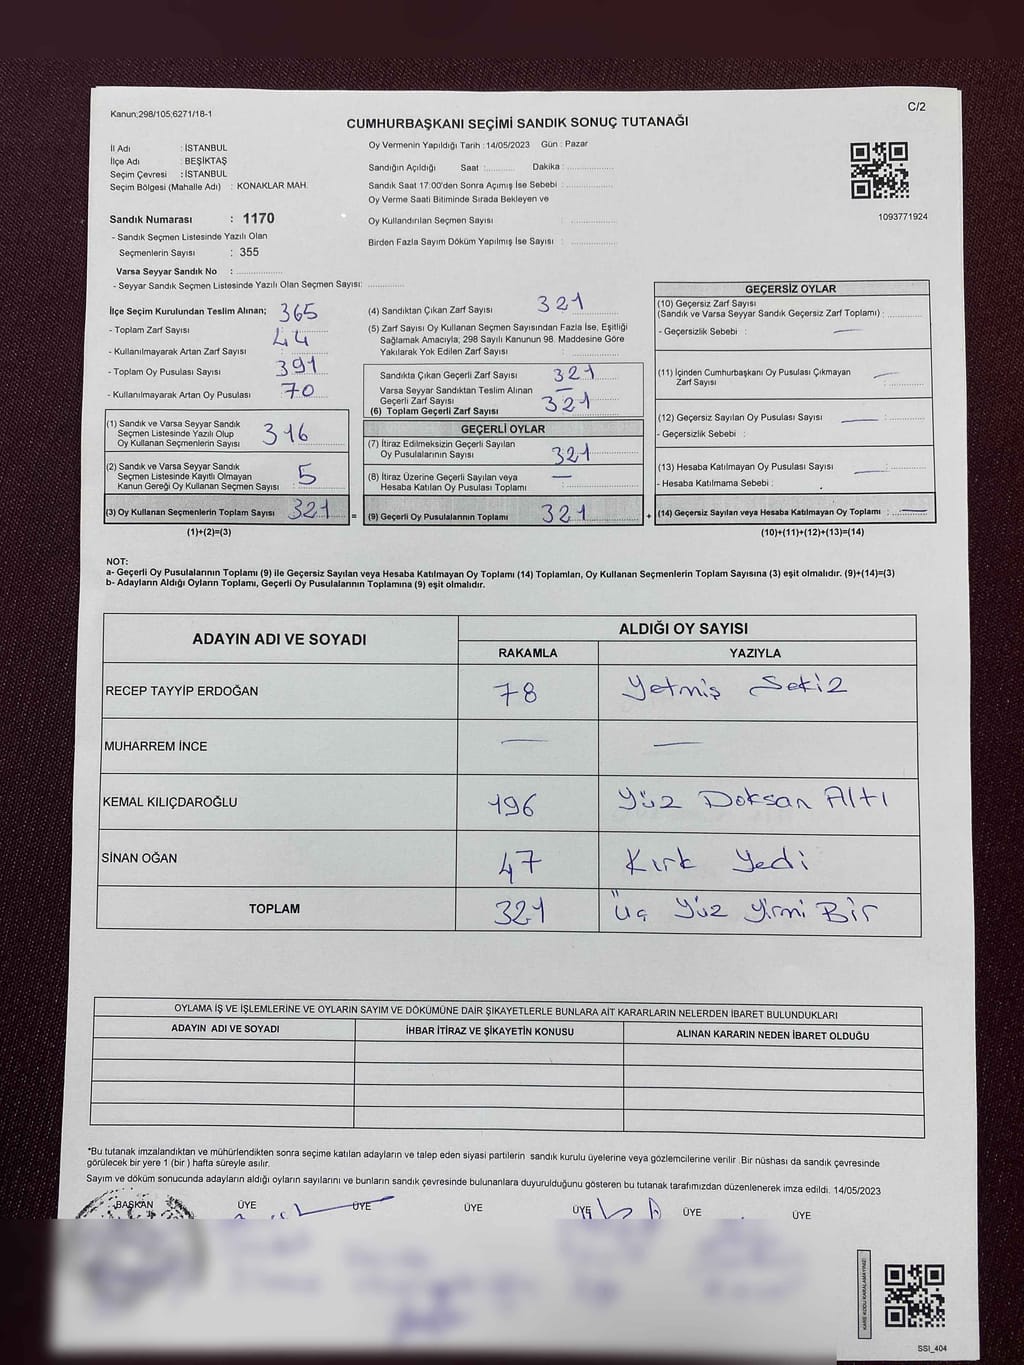 Kanun;298/105;6271/18-1
C/2
CUMHURBAŞKANI SEÇİMİ SANDIK SONUÇ TUTANAĞI
İl Adı : İSTANBUL
İlçe Adı : BEŞİKTAŞ
Seçim Çevresi : İSTANBUL
Seçim Bölgesi (Mahalle Adı) : KONAKLAR MAH.
Sandık Numarası : 1170
- Sandık Seçmen Listesinde Yazılı Olan
Seçmenlerin Sayısı : 355
Varsa Seyyar Sandık No :
- Seyyar Sandık Seçmen Listesinde Yazılı Olan Seçmen Sayısı:
Oy Vermenin Yapıldığı Tarih : 14/05/2023 Gün : Pazar
Sandığın Açıldığı Saat : Dakika :
Sandık Saat 17:00'den Sonra Açımış İse Sebebi :
Oy Verme Saati Bitiminde Sırada Bekleyen ve
Oy Kullandırılan Seçmen Sayısı :
Birden Fazla Sayım Döküm Yapılmış İse Sayısı :
1093771924
İlçe Seçim Kurulundan Teslim Alınan; 365
- Toplam Zarf Sayısı
44
- Kullanılmayarak Artan Zarf Sayısı
- Toplam Oy Pusulası Sayısı 391
- Kullanılmayarak Artan Oy Pusulası 70
(1) Sandık ve Varsa Seyyar Sandık
Seçmen Listesinde Yazılı Olup
Oy Kullanan Seçmenlerin Sayısı 316
(2) Sandık ve Varsa Seyyar Sandık
Seçmen Listesinde Kayıtlı Olmayan
Kanun Gereği Oy Kullanan Seçmen Sayısı 5
(3) Oy Kullanan Seçmenlerin Toplam Sayısı 321 =
(1)+(2)=(3)
(4) Sandıktan Çıkan Zarf Sayısı 321
(5) Zarf Sayısı Oy Kullanan Seçmen Sayısından Fazla İse, Eşitliği
Sağlamak Amacıyla; 298 Sayılı Kanunun 98. Maddesine Göre
Yakılarak Yok Edilen Zarf Sayısı :
Sandıkta Çıkan Geçerli Zarf Sayısı 321
Varsa Seyyar Sandıktan Teslim Alınan
Geçerli Zarf Sayısı —
(6) Toplam Geçerli Zarf Sayısı 321
GEÇERLİ OYLAR
(7) İtiraz Edilmeksizin Geçerli Sayılan
Oy Pusulalarının Sayısı 321
(8) İtiraz Üzerine Geçerli Sayılan veya
Hesaba Katılan Oy Pusulası Toplamı : —
(9) Geçerli Oy Pusulalarının Toplamı 321 +
GEÇERSİZ OYLAR
(10) Geçersiz Zarf Sayısı
(Sandık ve Varsa Seyyar Sandık Geçersiz Zarf Toplamı) :
- Geçersizlik Sebebi : —
(11) İçinden Cumhurbaşkanı Oy Pusulası Çıkmayan
Zarf Sayısı : —
(12) Geçersiz Sayılan Oy Pusulası Sayısı —
- Geçersizlik Sebebi :
(13) Hesaba Katılmayan Oy Pusulası Sayısı —
- Hesaba Katılmama Sebebi :
(14) Geçersiz Sayılan veya Hesaba Katılmayan Oy Toplamı : —
(10)+(11)+(12)+(13)=(14)
NOT:
a- Geçerli Oy Pusulalarının Toplamı (9) ile Geçersiz Sayılan veya Hesaba Katılmayan Oy Toplamı (14) Toplamları, Oy Kullanan Seçmenlerin Toplam Sayısına (3) eşit olmalıdır. (9)+(14)=(3)
b- Adayların Aldığı Oyların Toplamı, Geçerli Oy Pusulalarının Toplamına (9) eşit olmalıdır.
ADAYIN ADI VE SOYADI
ALDIĞI OY SAYISI
RAKAMLA YAZIYLA
RECEP TAYYİP ERDOĞAN 78 Yetmiş Sekiz
MUHARREM İNCE — —
KEMAL KILIÇDAROĞLU 196 Yüz Doksan Altı
SİNAN OĞAN 47 Kırk Yedi
TOPLAM 321 Üç Yüz Yirmi Bir
OYLAMA İŞ VE İŞLEMLERİNE VE OYLARIN SAYIM VE DÖKÜMÜNE DAİR ŞİKAYETLERLE BUNLARA AİT KARARLARIN NELERDEN İBARET BULUNDUKLARI
ADAYIN ADI VE SOYADI İHBAR İTİRAZ VE ŞİKAYETİN KONUSU ALINAN KARARIN NEDEN İBARET OLDUĞU
*Bu tutanak imzalandıktan ve mühürlendikten sonra seçime katılan adayların ve talep eden siyasi partilerin sandık kurulu üyelerine veya gözlemcilerine verilir .Bir nüshası da sandık çevresinde
görülecek bir yere 1 (bir ) hafta süreyle asılır.
Sayım ve döküm sonucunda adayların aldığı oyların sayılarını ve bunların sandık çevresinde bulunanlara duyurulduğunu gösteren bu tutanak tarafımızdan düzenlenerek imza edildi. 14/05/2023
BAŞKAN ÜYE ÜYE ÜYE ÜYE ÜYE ÜYE
KARE KODU KARALAMAYINIZ!
SSI_404